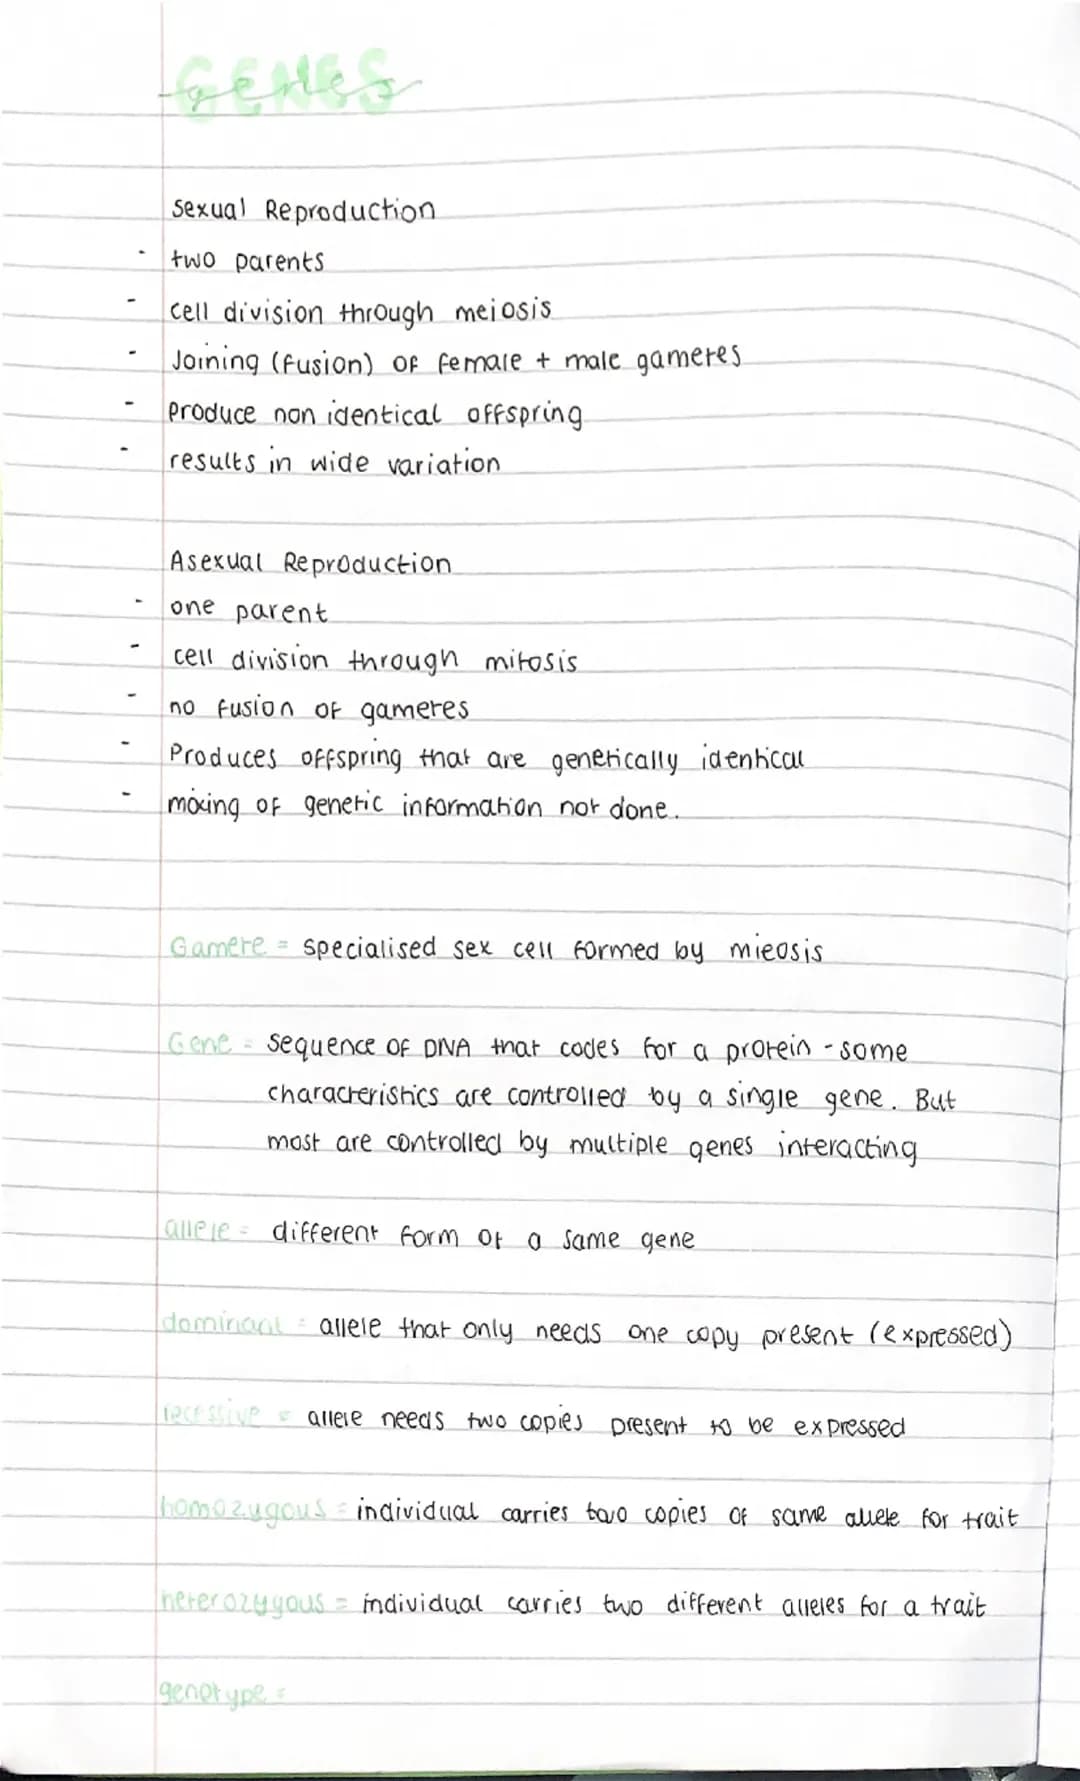 GENES
genes
Sexual Reproduction
· two parents
- cell division through meiosis
- Joining (fusion) of female + male gametes
- Produce non identical offspring
- results in wide variation
Asexual Reproduction
- one parent
- cell division through mitosis
- no fusion of gametes
- Produces offspring that are genetically identical
- mixing of genetic information not done.
Gamete = specialised sex cell formed by mieosis
Gene = sequence of DNA that codes for a protein - some
characteristics are controlled by a single gene. But
most are controlled by multiple genes interacting
allele = different form of a same gene
dominant = allele that only needs one copy present (expressed)
recessive = allele needs two copies present to be expressed
homozygous = individual carries two copies of same allele for trait
heterozygous = individual carries two different alleles for a trait
genotype =